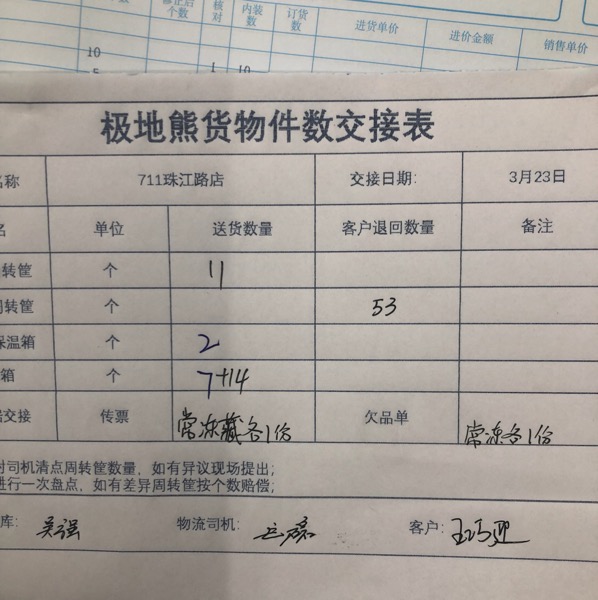 个数
核对
内装数
订货数
进货单价
进价金额
销售单价
10
1 10
极地熊货物件数交接表
名称 711珠江路店 交接日期: 3月23日
名 单位 送货数量 客户退回数量 备注
转筐 个 11
转筐 个 53
保温箱 个 2
箱 个 7+14
交接 传票 常冻藏各1份 欠品单 常冻各1份
对司机清点周转筐数量，如有异议现场提出；
进行一次盘点，如有差异周转筐按个数赔偿；
库: 吴强 物流司机: 客户: 王巧迎